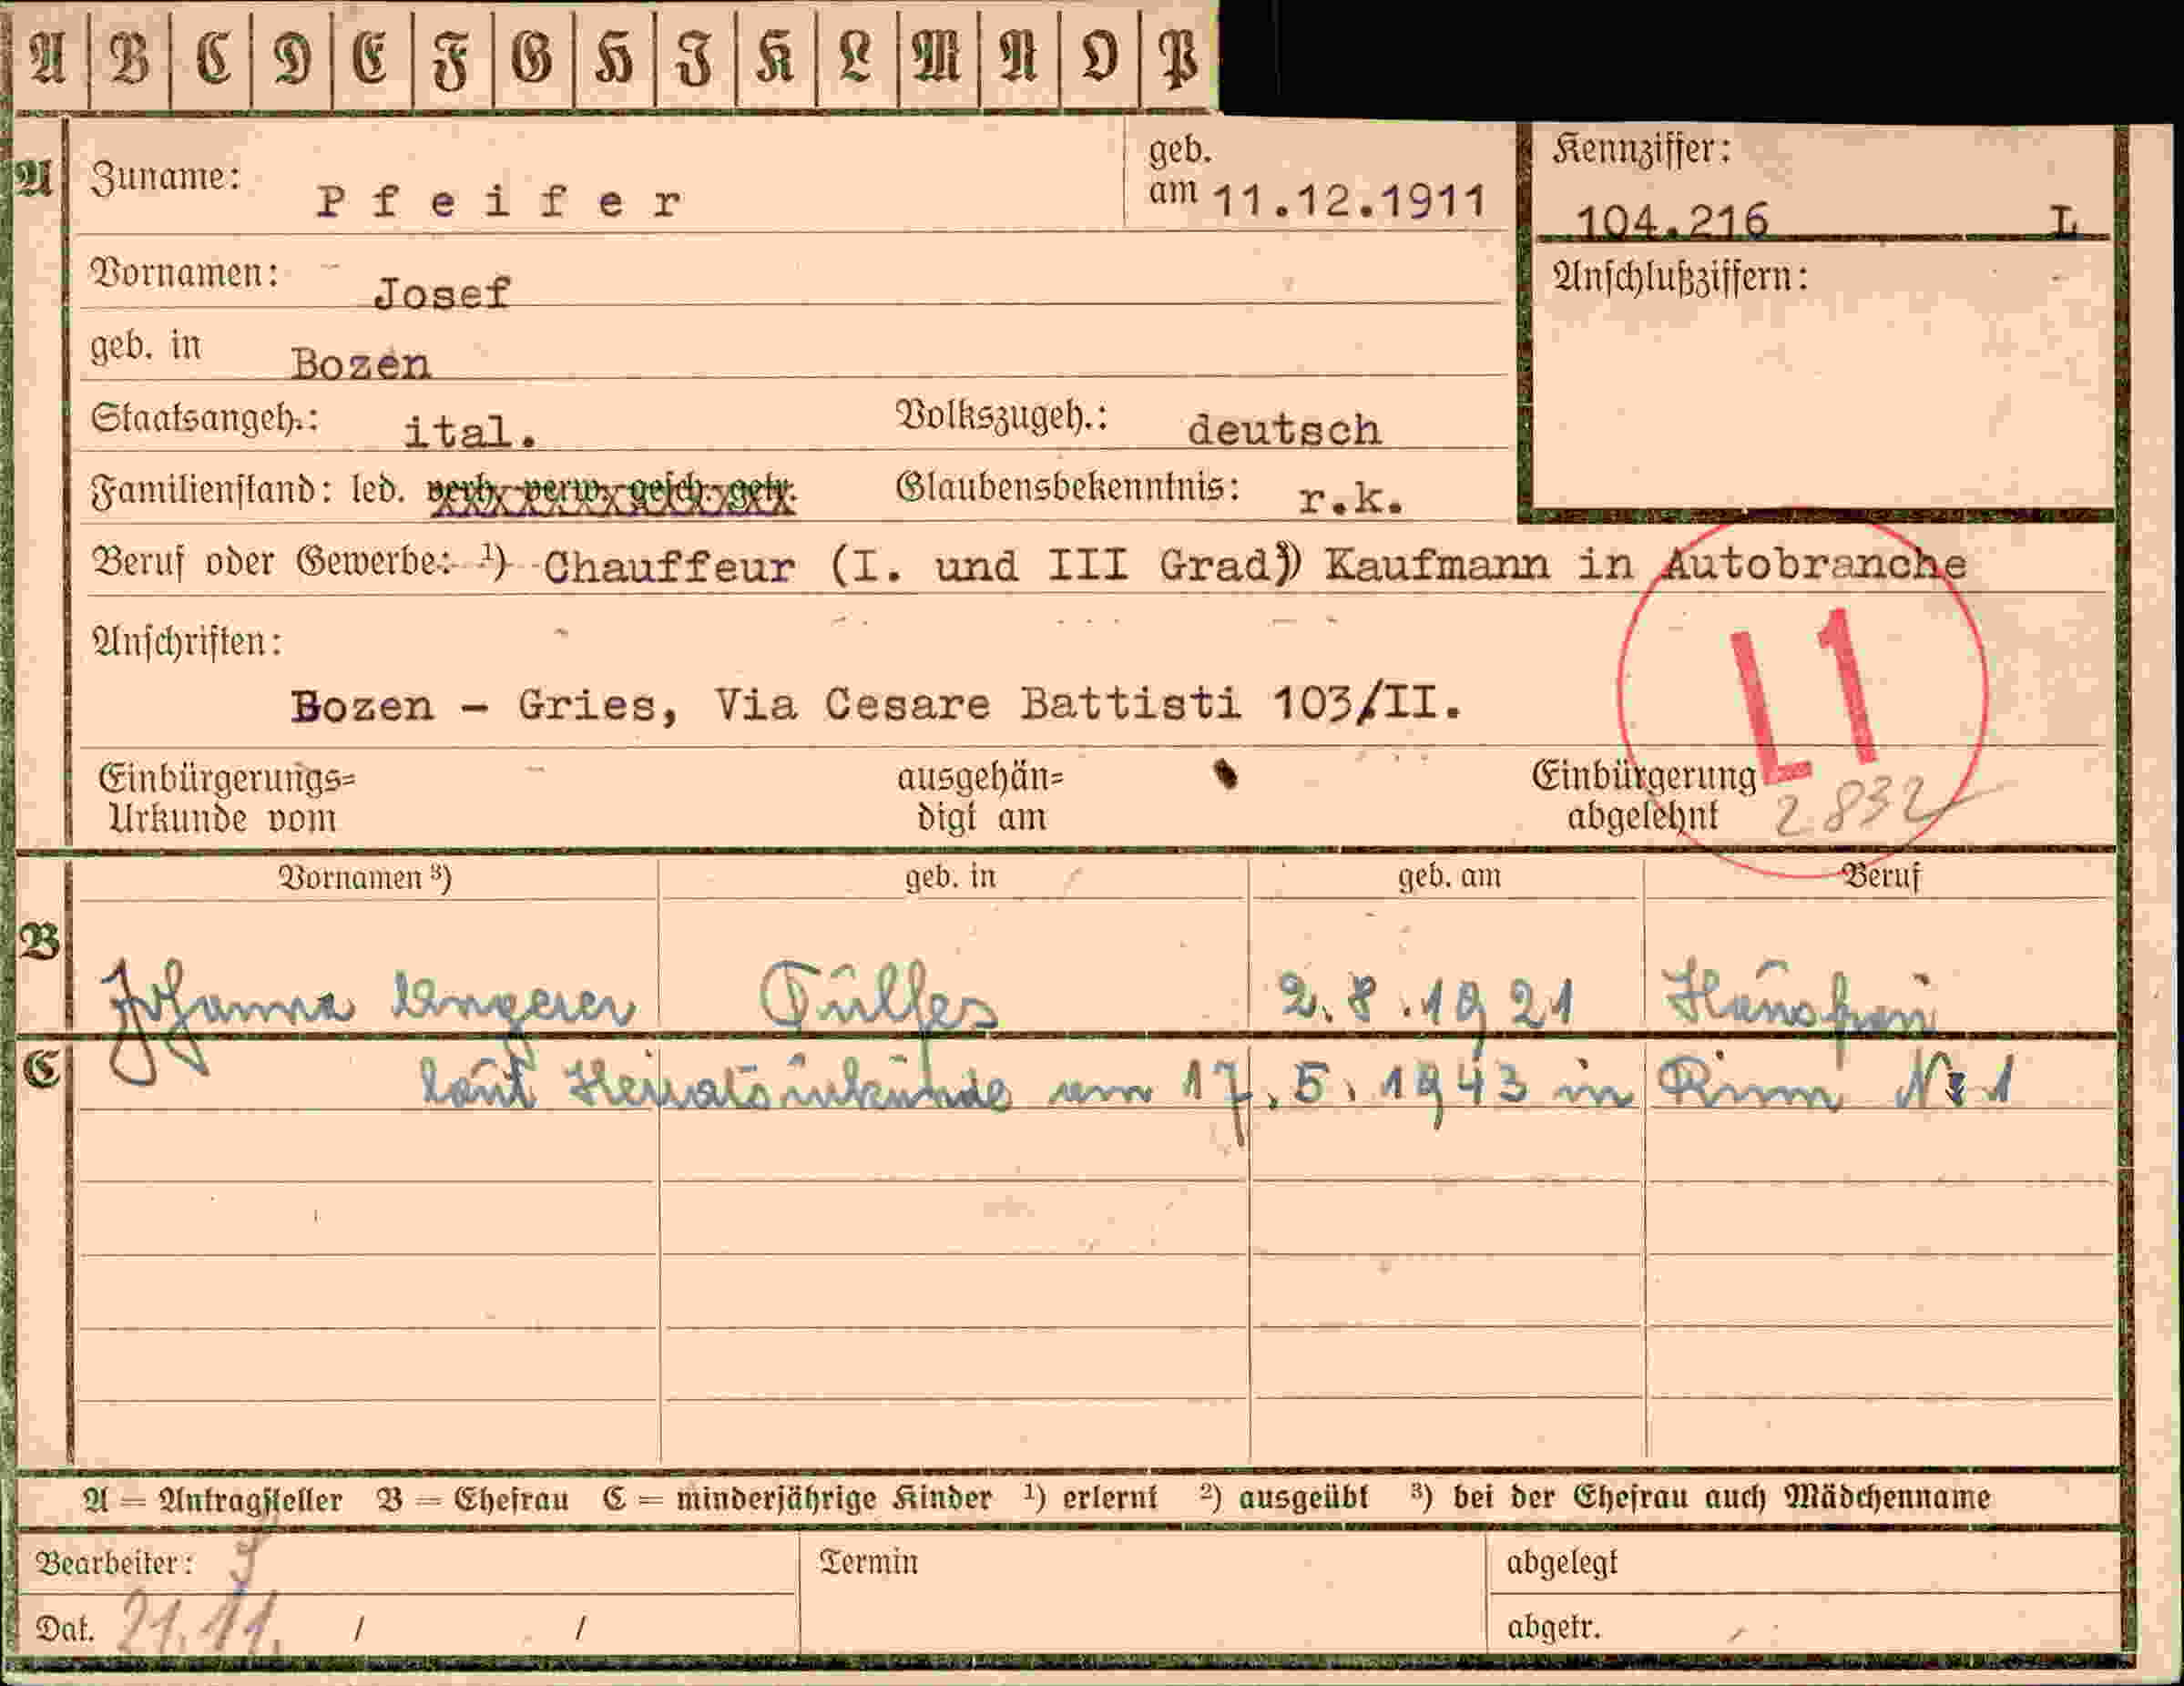 A B C D E F G H J K L M N O P
A Zuname: Pfeifer geb. am 11.12.1911 Kennziffer: 104.216 L
Vornamen: Josef Anschlußziffern:
geb. in Bozen
Staatsangeh.: ital. Volkszugeh.: deutsch
Familienstand: led. verh. verw. gesch. getr. Glaubensbekenntnis: r.k.
Beruf oder Gewerbe: ¹) Chauffeur (I. und III Grad) Kaufmann in Autobranche
Anschriften:
L1
Bozen - Gries, Via Cesare Battisti 103/II.
Einbürgerungs= ausgehän= Einbürgerung
Urkunde vom digt am abgelehnt 2832
Vornamen ³) geb. in geb. am Beruf
B Johanna Ungerer Tulfes 2.8.1921 Hausfrau
C laut Heiratsurkunde am 17.5.1943 in Rinn Nr 1
A = Antragsteller B = Ehefrau C = minderjährige Kinder ¹) erlernt ²) ausgeübt ³) bei der Ehefrau auch Mädchenname
Bearbeiter: Termin abgelegt
Dat. 21.11. / / abgetr.